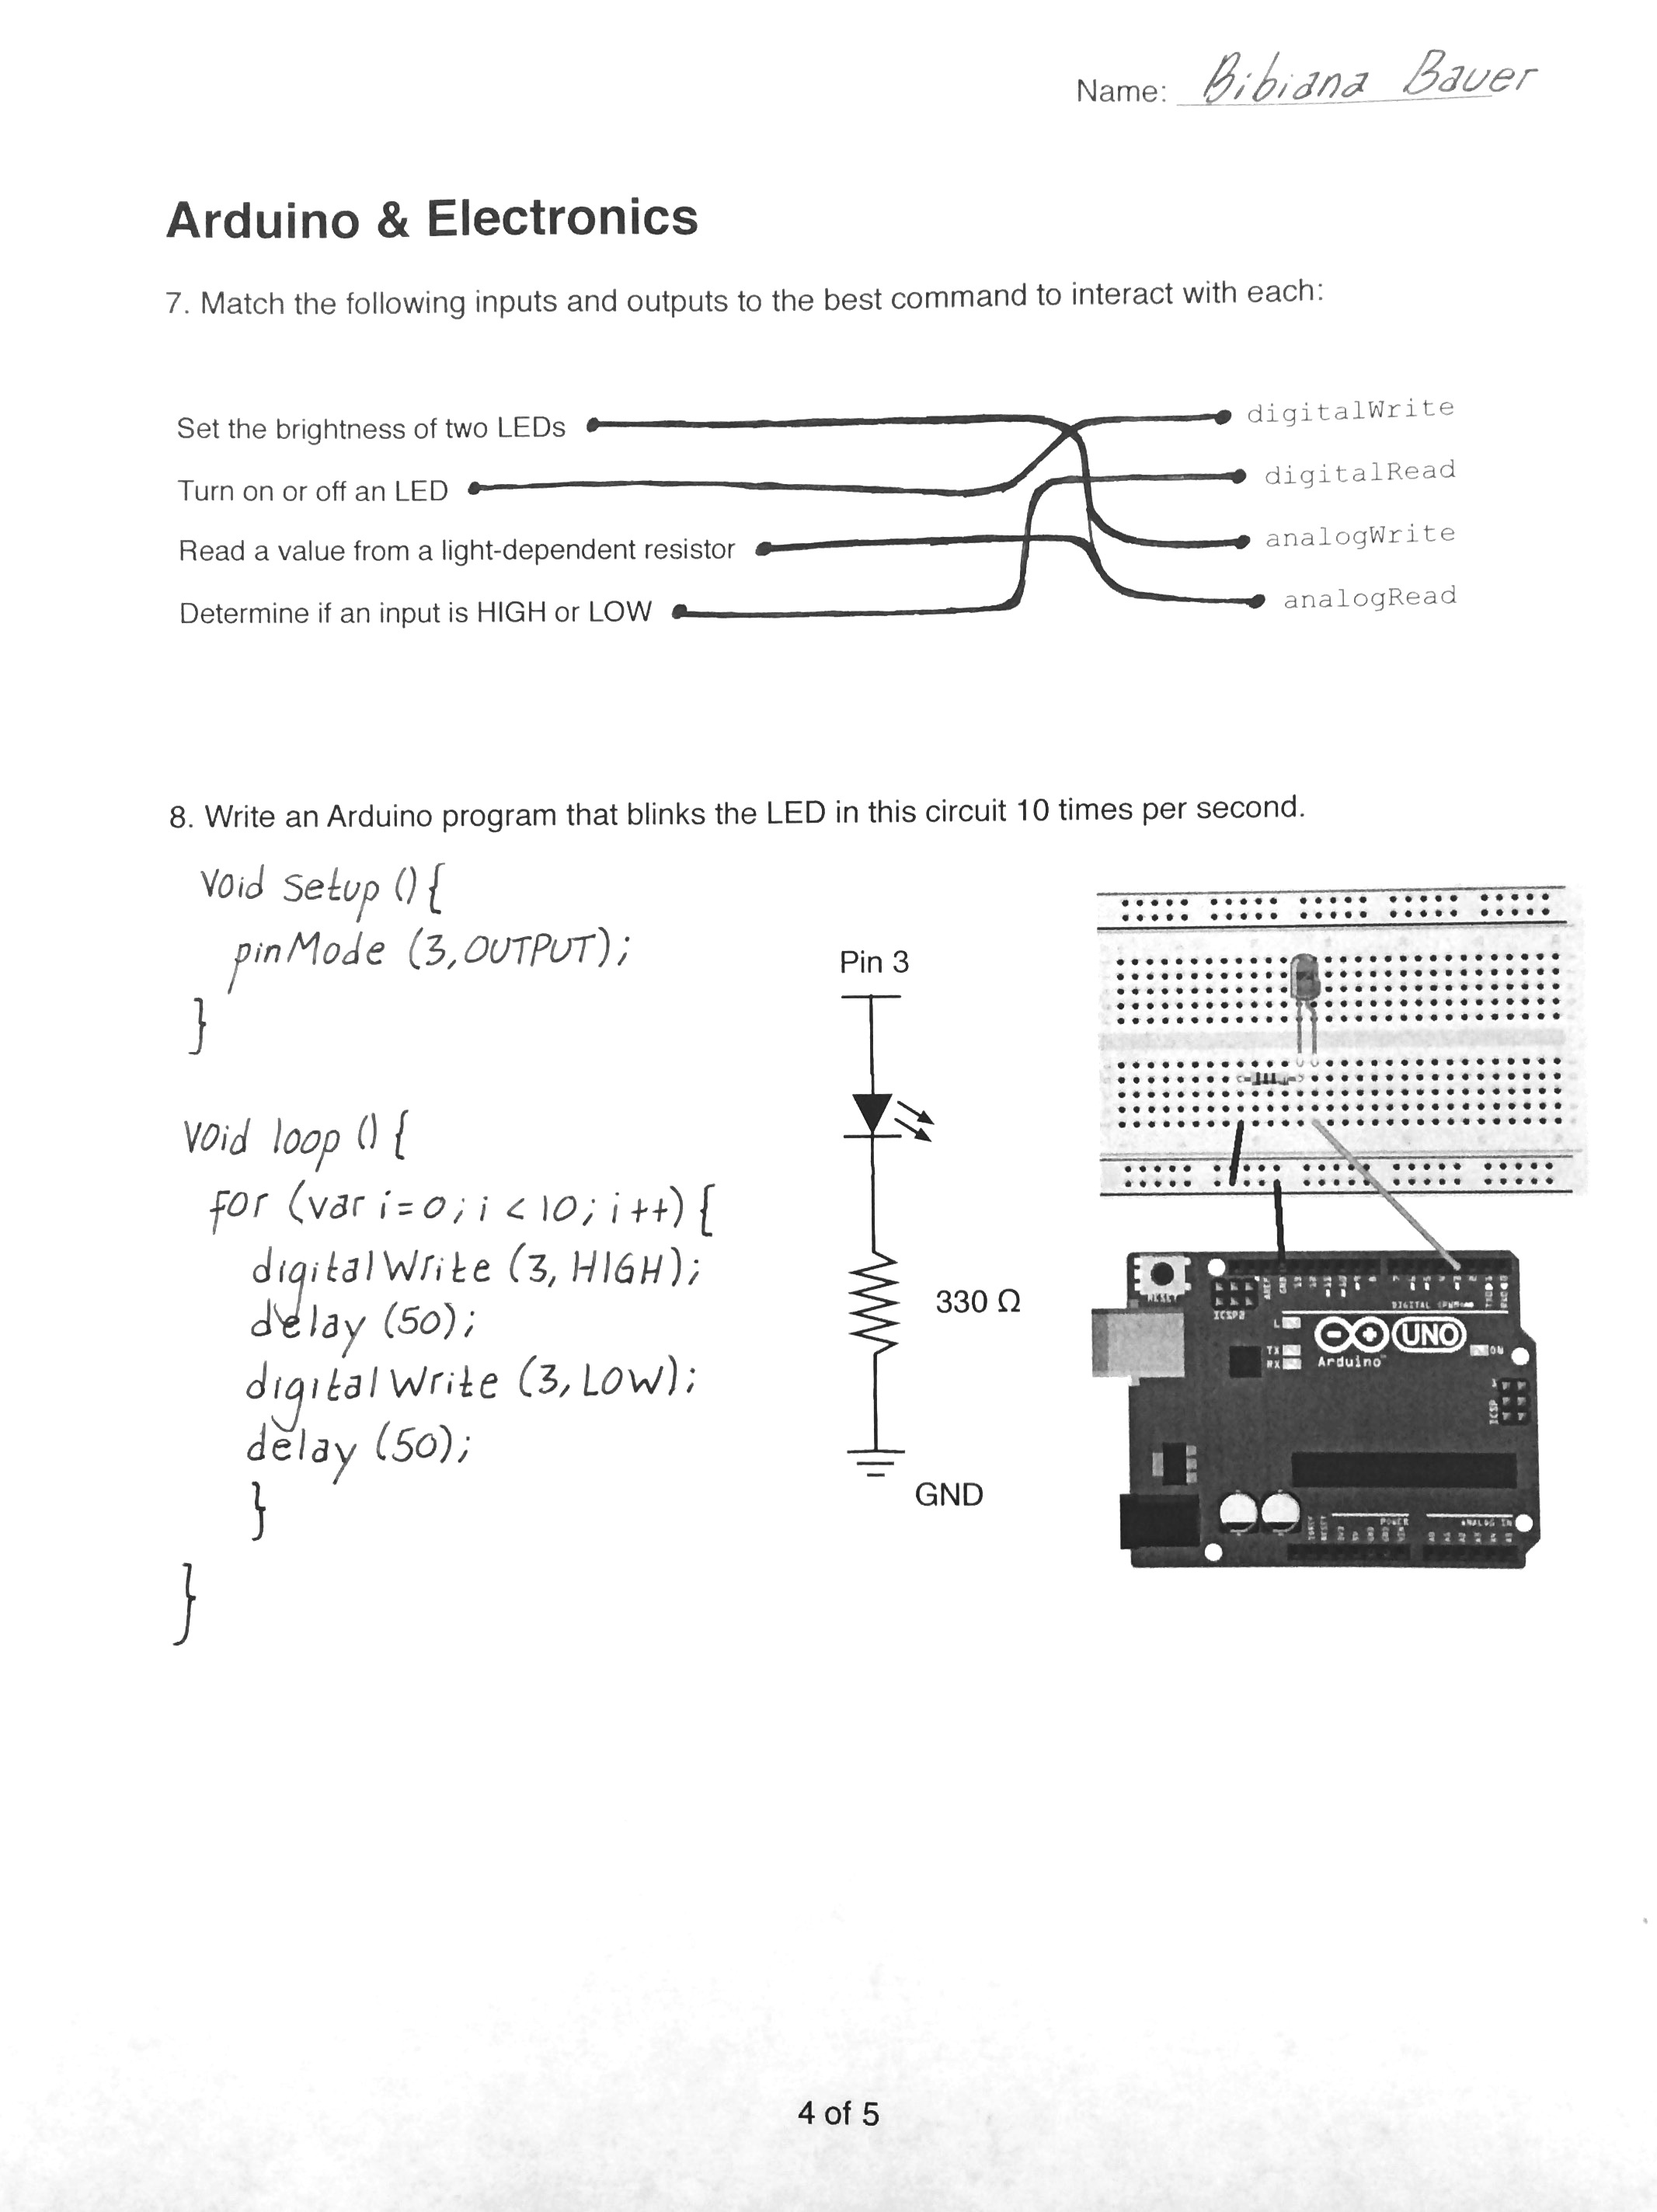 Name: Bibiana Bauer
Arduino & Electronics
7. Match the following inputs and outputs to the best command to interact with each:
Set the brightness of two LEDs
digitalWrite
Turn on or off an LED
digitalRead
Read a value from a light-dependent resistor
analogWrite
Determine if an input is HIGH or LOW
analogRead
8. Write an Arduino program that blinks the LED in this circuit 10 times per second.
void setup () {
pinMode (3, OUTPUT);
}
void loop () {
for (var i=0; i < 10; i++) {
digitalWrite (3, HIGH);
delay (50);
digitalWrite (3, LOW);
delay (50);
}
}
Pin 3
330 Ω
GND
RESET
ICSP2
AREF
GND
DIGITAL
L
TX
RX
UNO
Arduino
ON
ICSP
1
POWER
ANALOG IN
4 of 5